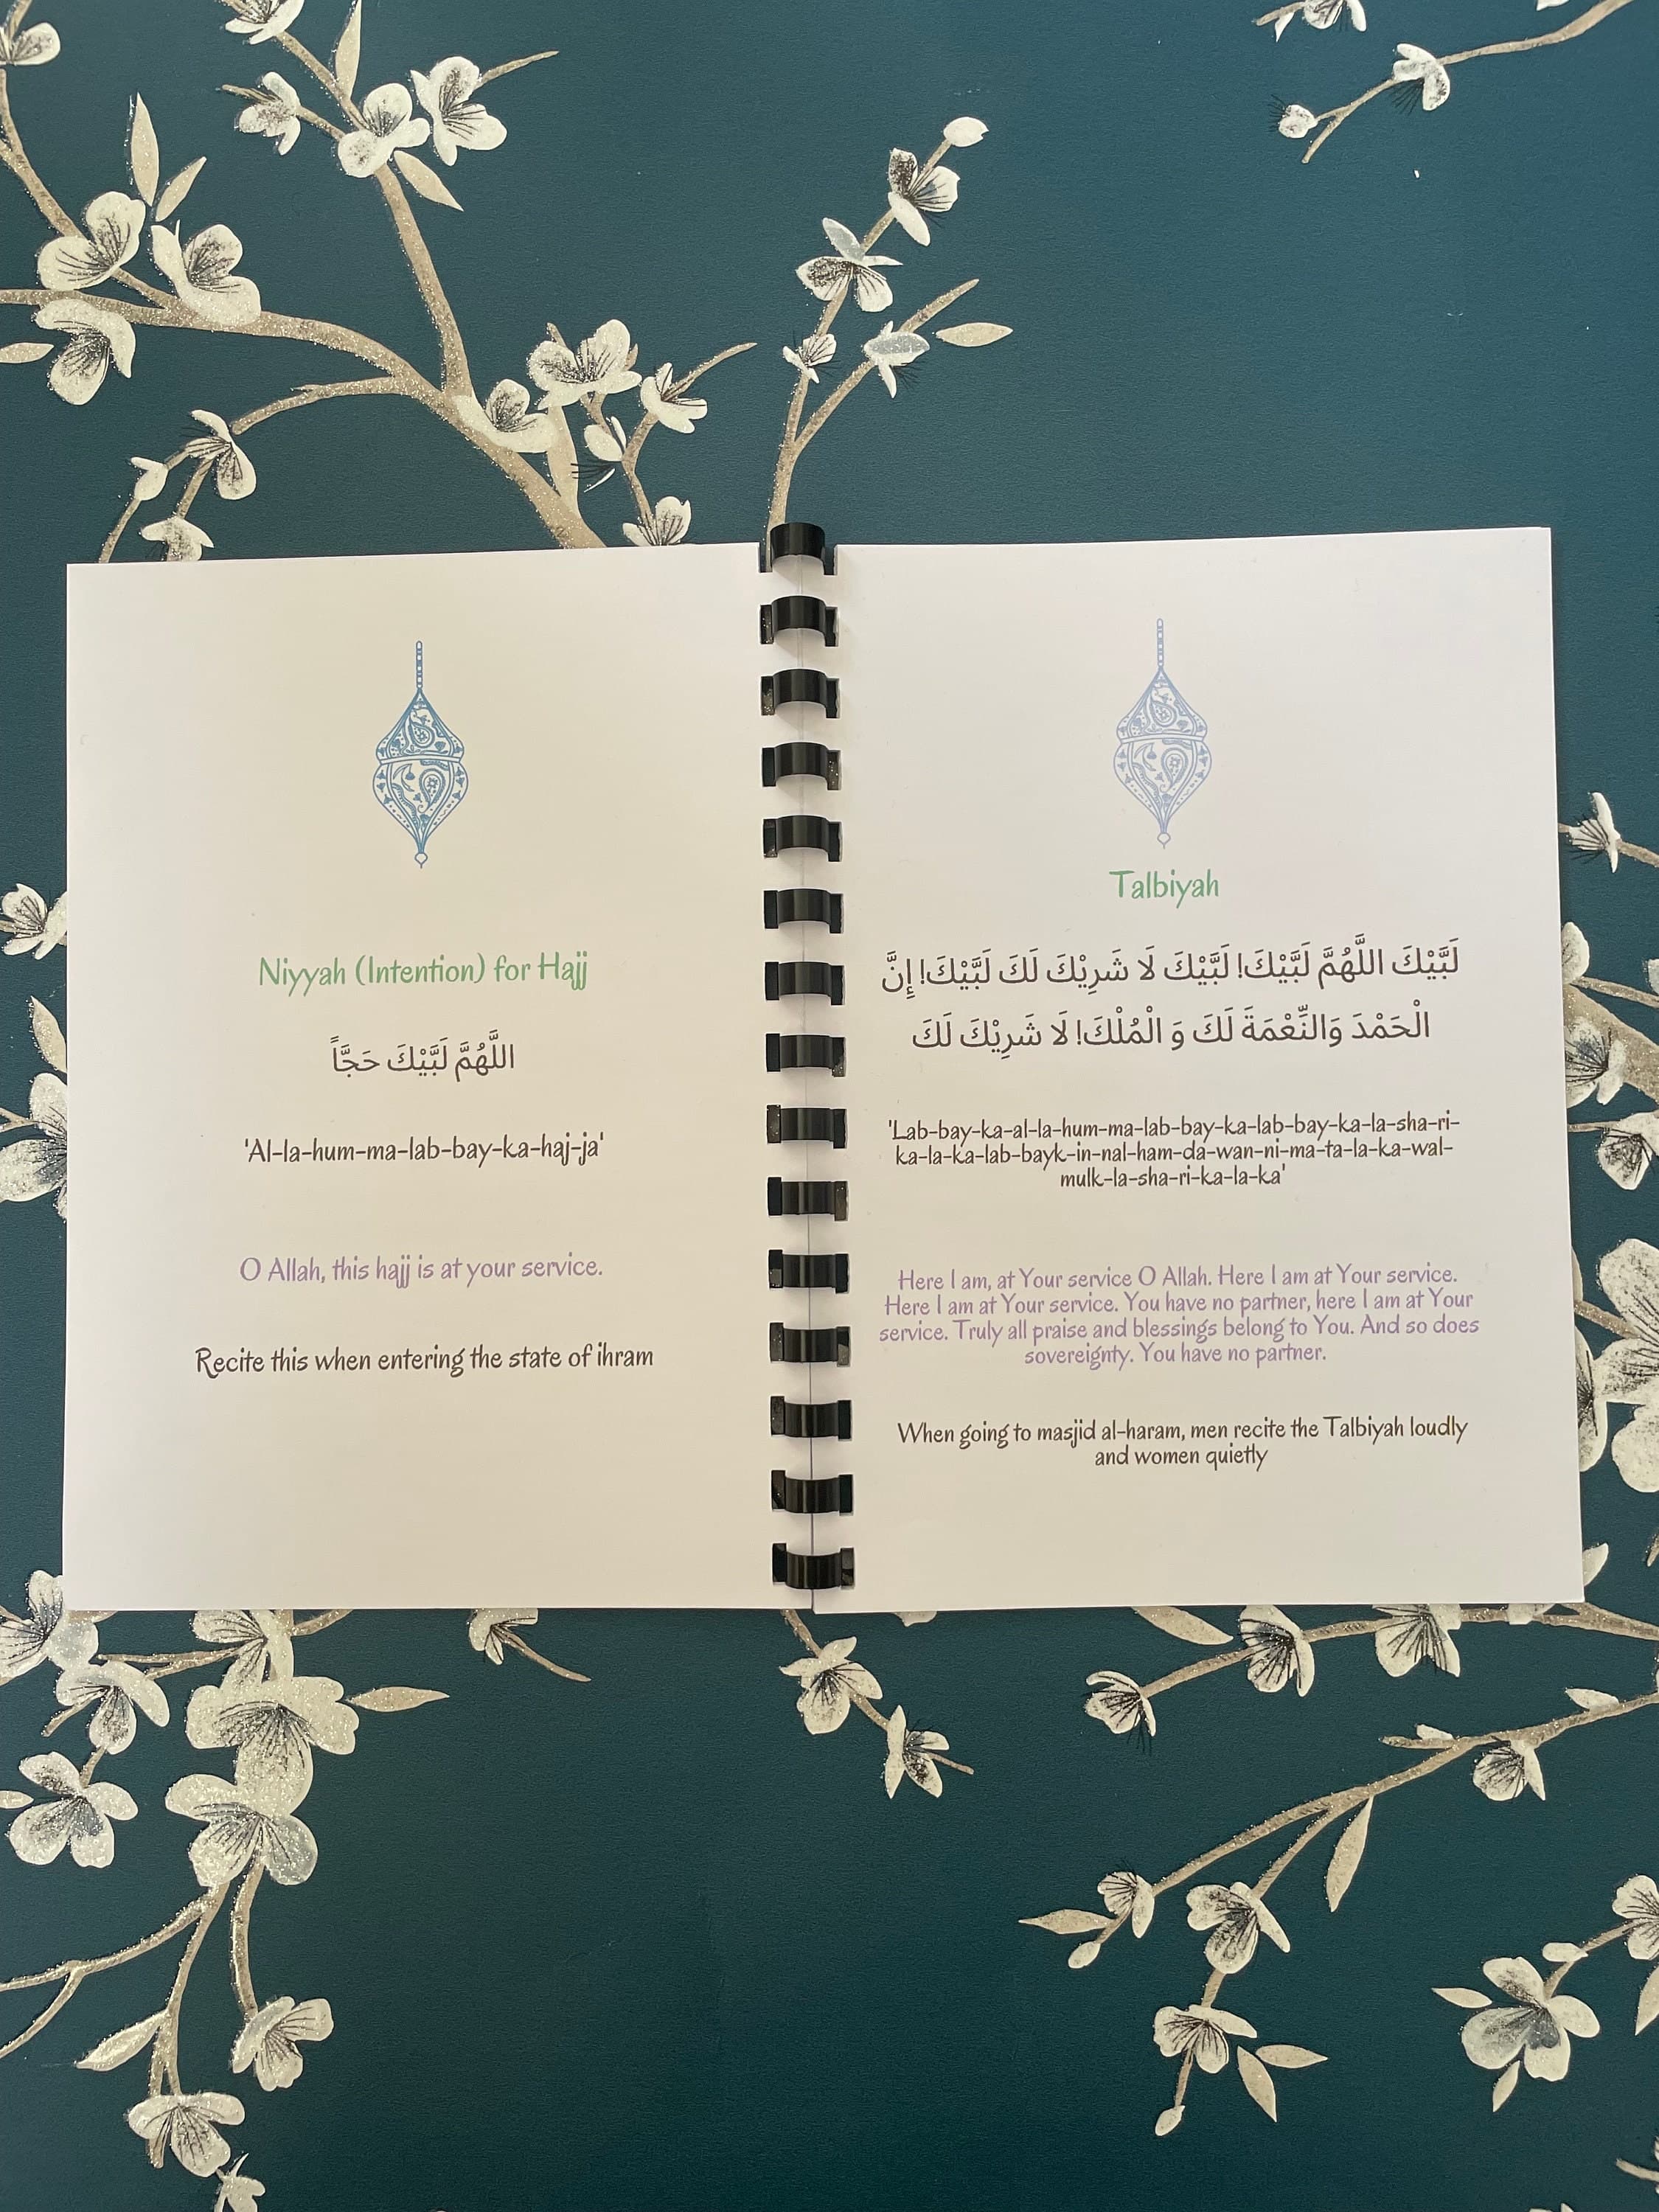 Niyyah (Intention) for Hajj
اللَّهُمَّ لَبَّيْكَ حَجَّاً
'Al-la-hum-ma-lab-bay-ka-haj-ja'
O Allah, this hajj is at your service.
Recite this when entering the state of ihram
Talbiyah
لَبَّيْكَ اللَّهُمَّ لَبَّيْكَ! لَبَّيْكَ لَا شَرِيْكَ لَكَ لَبَّيْكَ! إِنَّ
الْحَمْدَ وَالنِّعْمَةَ لَكَ وَ الْمُلْكَ! لَا شَرِيْكَ لَكَ
'Lab-bay-ka-al-la-hum-ma-lab-bay-ka-lab-bay-ka-la-sha-ri-
ka-la-ka-lab-bayk-in-nal-ham-da-wan-ni-ma-ta-la-ka-wal-
mulk-la-sha-ri-ka-la-ka'
Here I am, at Your service O Allah. Here I am at Your service.
Here I am at Your service. You have no partner, here I am at Your
service. Truly all praise and blessings belong to You. And so does
sovereignty. You have no partner.
When going to masjid al-haram, men recite the Talbiyah loudly
and women quietly